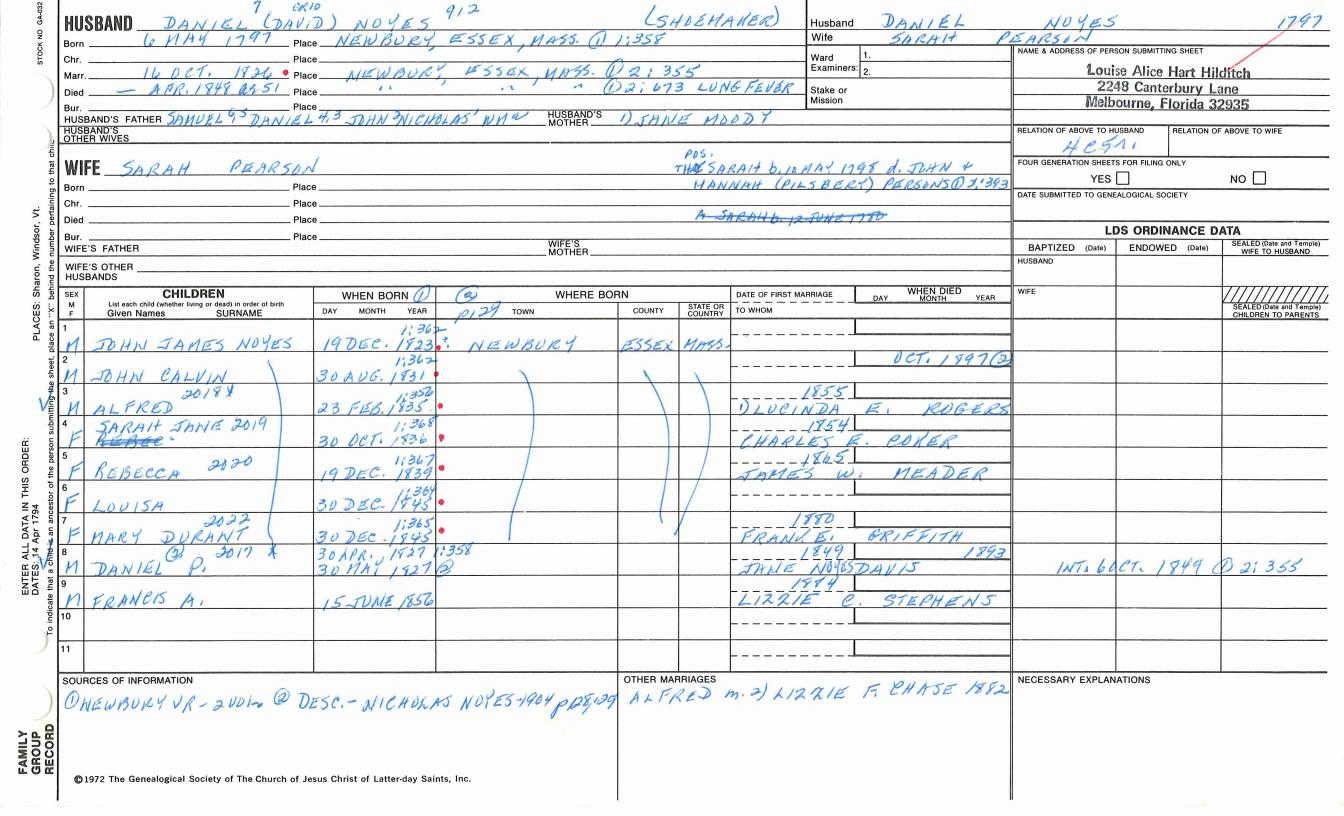 STOCK NO. GA-032
7 GRID
HUSBAND DANIEL (DAVID) NOYES 912 (SHOEMAKER)
Born 6 MAY 1797 Place NEWBURY, ESSEX, MASS. ① 1:358
Chr. Place
Marr. 16 OCT. 1826 Place NEWBURY, ESSEX, MASS. ① 2:355
Died — APR. 1848 ag 51 Place " " " ① 2:673 LUNG FEVER
Bur. Place
HUSBAND'S FATHER SAMUEL 6,5 DANIEL 4,3 JOHN 2 NICHOLAS 1 WM a HUSBAND'S MOTHER 1) JANE MOODY
HUSBAND'S OTHER WIVES
Husband DANIEL NOYES 1797
Wife SARAH PEARSON
Ward Examiners: 1.
2.
Stake or Mission
NAME & ADDRESS OF PERSON SUBMITTING SHEET
Louise Alice Hart Hilditch
2248 Canterbury Lane
Melbourne, Florida 32935
RELATION OF ABOVE TO HUSBAND RELATION OF ABOVE TO WIFE
FOUR GENERATION SHEETS FOR FILING ONLY
YES NO
DATE SUBMITTED TO GENEALOGICAL SOCIETY
WIFE SARAH PEARSON
POS.
THE SARAH b. 10 MAY 1798 d. JOHN +
HANNAH (PILSBERY) PERSONS ① 1:393
Born Place
Chr. Place
A SARAH b. 12 JUNE 1780
Died Place
Bur. Place
WIFE'S FATHER WIFE'S MOTHER
WIFE'S OTHER HUSBANDS
LDS ORDINANCE DATA
BAPTIZED (Date) ENDOWED (Date) SEALED (Date and Temple) WIFE TO HUSBAND
HUSBAND
WIFE
SEALED (Date and Temple) CHILDREN TO PARENTS
SEX M F
CHILDREN
List each child (whether living or dead) in order of birth
Given Names SURNAME
WHEN BORN ①
DAY MONTH YEAR
② p129
WHERE BORN
TOWN COUNTY STATE OR COUNTRY
DATE OF FIRST MARRIAGE
TO WHOM
WHEN DIED
DAY MONTH YEAR
1 1:362
M JOHN JAMES NOYES 19 DEC. 1823 ? NEWBURY ESSEX MASS.
2 1:362 OCT. 1897 ②
M JOHN CALVIN 30 AUG. 1831
3 2018 X 1:356 1855
M ALFRED 23 FEB. 1835 1) LUCINDA E. ROGERS
4 SARAH JANE 2019 1:368 1854
F REBEC 30 OCT. 1836 CHARLES E. COKER
5 2020 1:367 1865
F REBECCA 19 DEC. 1839 JAMES W. MEADER
6 1:364
F LOUISA 30 DEC. 1845
7 2022 1:365 1880
F MARY DURANT 30 DEC. 1845 FRANK E. GRIFFITH
8 ② 2017 X 30 APR. 1827 1:358 1849 1893
M DANIEL P. 30 MAY 1827 ② JANE NOYES DAVIS INT. 6 OCT. 1849 ① 2:355
9 1884
M FRANCIS A. 15 JUNE 1856 LIZZIE C. STEPHENS
10
11
SOURCES OF INFORMATION
① NEWBURY VR - 2 VOL. ② DESC. - NICHOLAS NOYES - 1904 p128,129
OTHER MARRIAGES
ALFRED m. 2) LIZZIE F. CHASE 1882
NECESSARY EXPLANATIONS
©1972 The Genealogical Society of The Church of Jesus Christ of Latter-day Saints, Inc.
FAMILY GROUP RECORD
ENTER ALL DATA IN THIS ORDER:
DATES: 14 Apr 1794
PLACES: Sharon, Windsor, Vt.
To indicate that a child is an ancestor of the person submitting the sheet, place an "X" behind the number pertaining to that child.